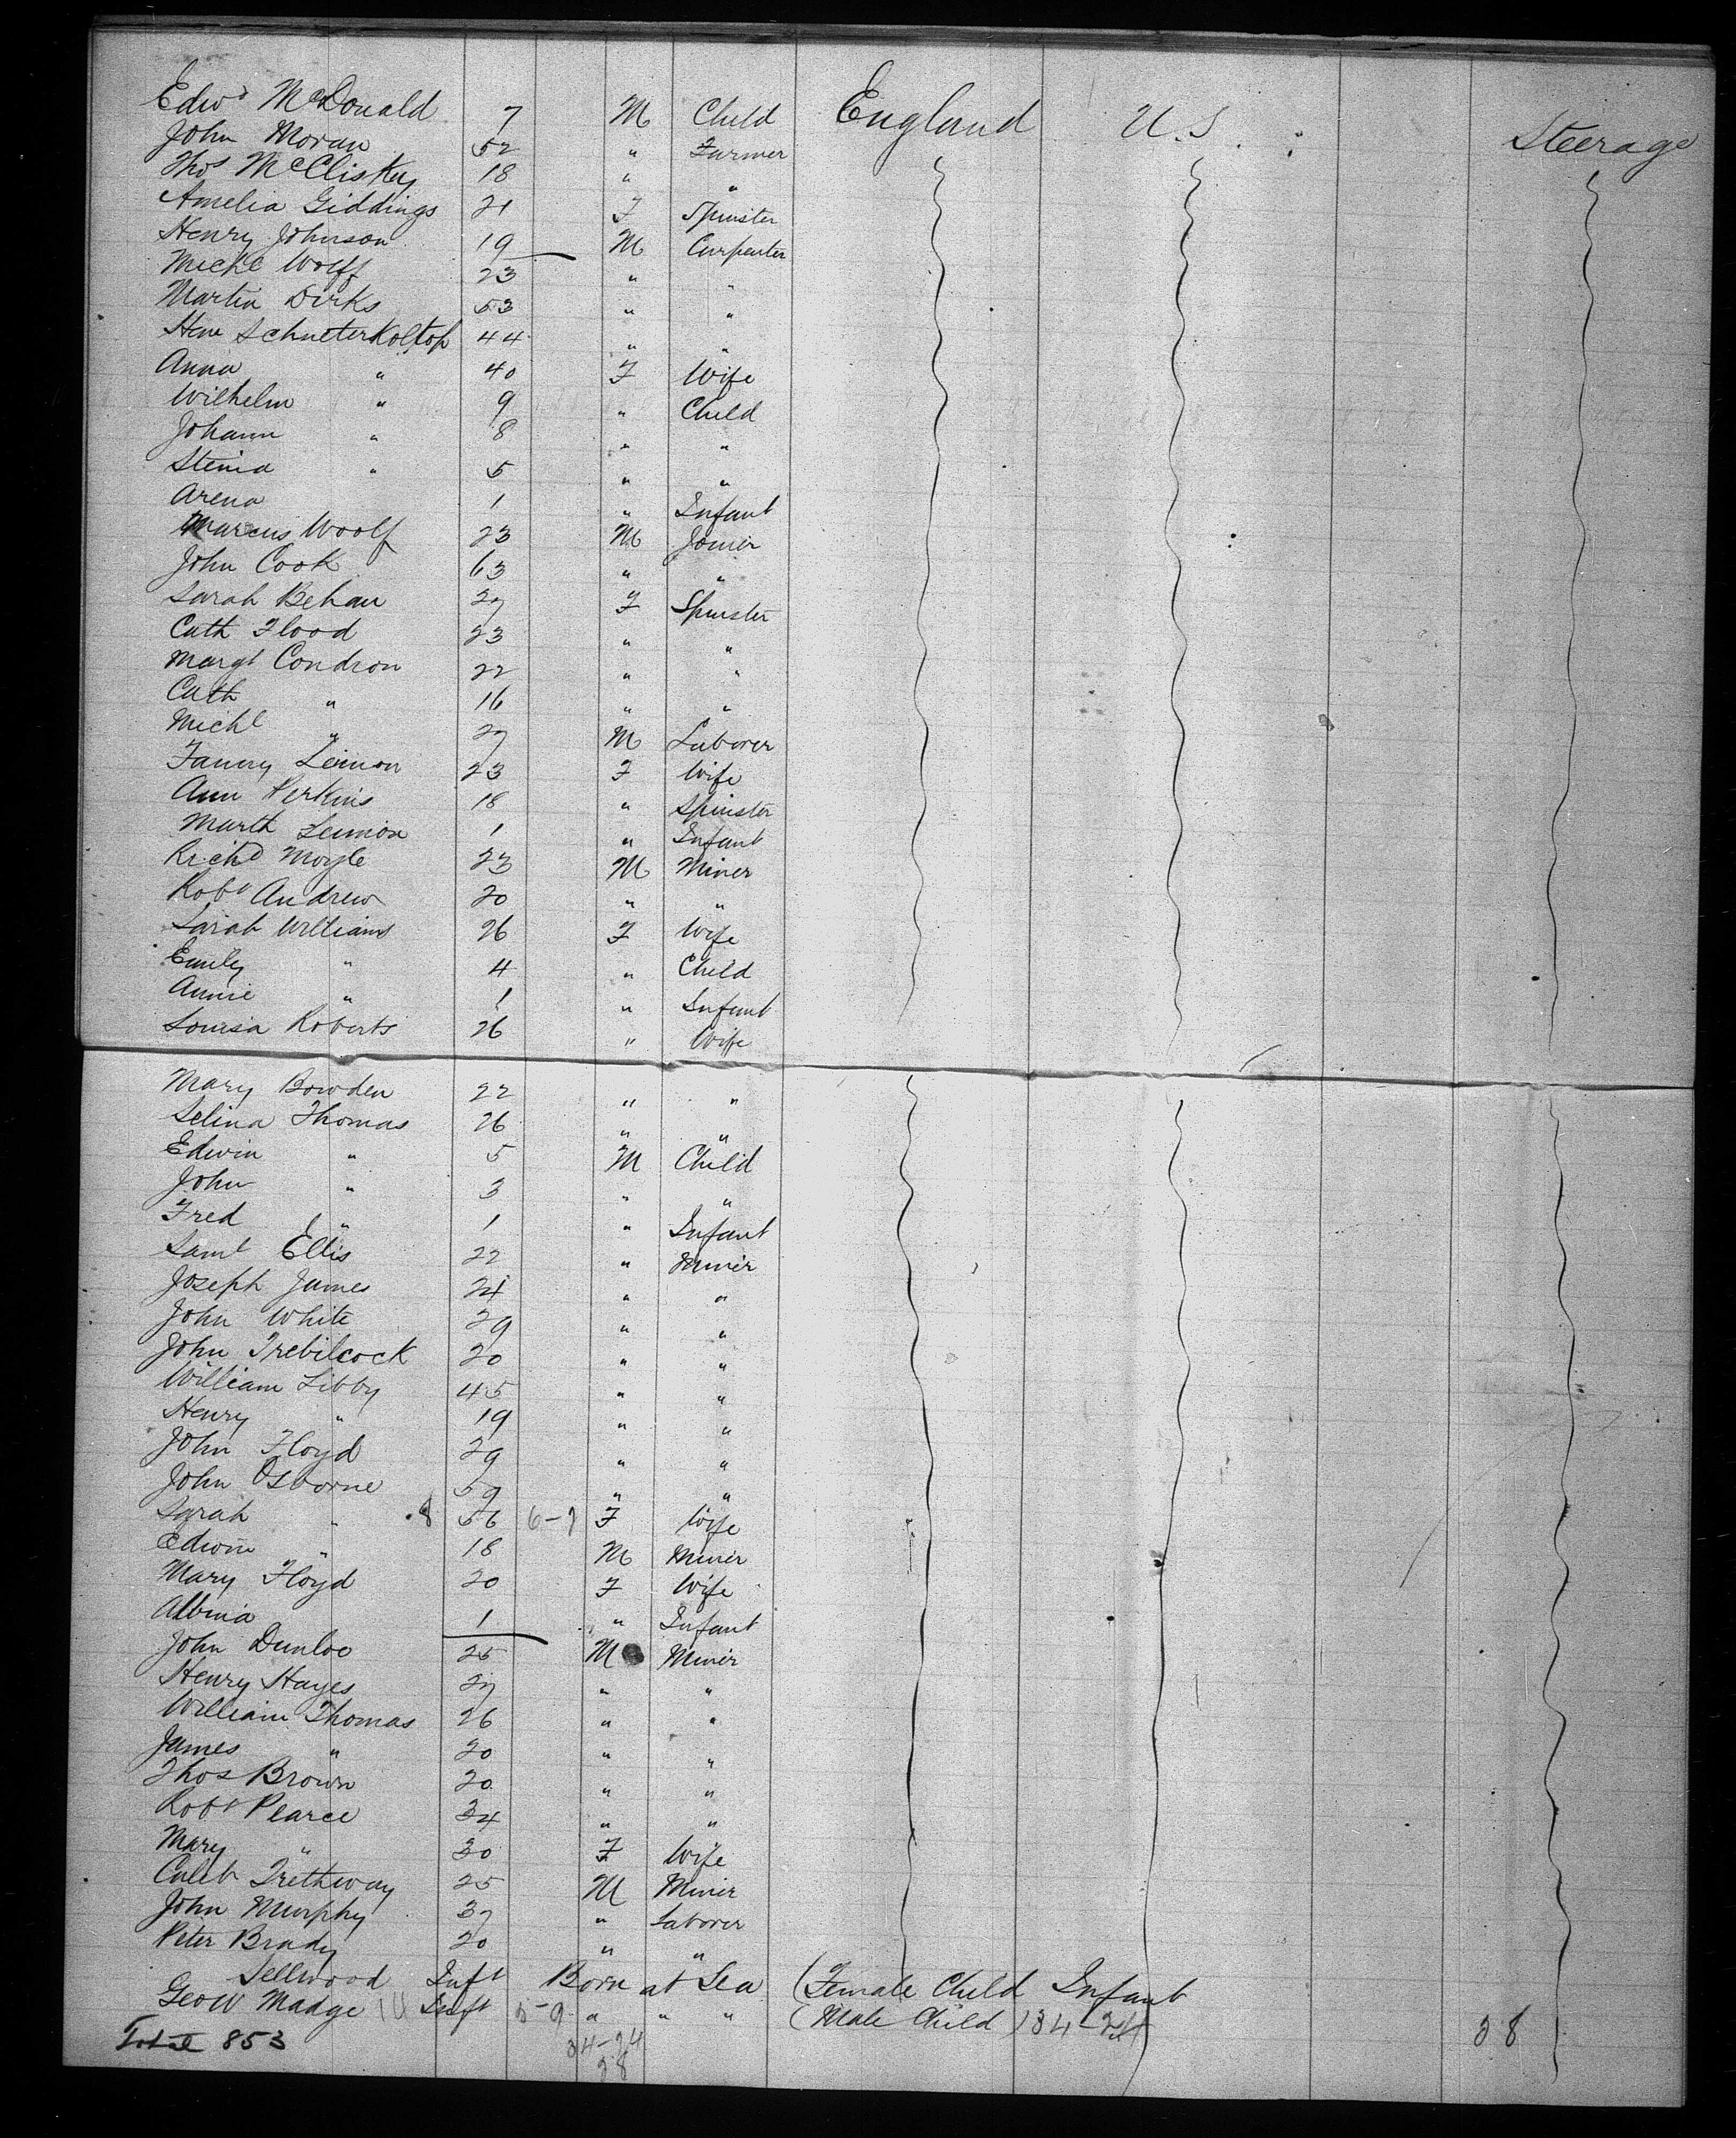 Edwd McDonald 7 M Child England U.S. Steerage
John Moran 52 " Farmer
Thos McCliskey 18 " "
Amelia Giddings 21 F Spinster
Henry Johnson 19 M Carpenter
Michl Wolff 23 " "
Martin Dirks 53 " "
44 " "
Anna " 40 F Wife
Wilhelm " 9 " Child
Johann " 8 " "
Stenia " 5 " "
Arena 1 " Infant
Marcus Woolf 23 M Joiner
John Cook 63 " "
Sarah Behan 27 F Spinster
Cath Flood 23 " "
Margt Condron 22 " "
Cath " 16 " "
Michl " 27 M Laborer
Fanny Lemon 23 F Wife
Ann Perkins 18 " Spinster
Marth Lemon 1 " Infant
Richd Moyle 23 M Miner
Robt Andrew 20 " "
Sarah Williams 26 F Wife
Emily " 4 " Child
Annie " 1 " Infant
Louisa Roberts 26 " Wife
Mary Bowden 22 " "
Selina Thomas 26 " "
Edwin " 5 M Child
John " 3 " "
Fred " 1 " Infant
Saml Ellis 22 " Miner
Joseph James 24 " "
John White 29 " "
John Trebilcock 20 " "
William Libby 45 " "
Henry " 19 " "
John Floyd 29 " "
John Osborne 59 " "
Sarah " 8 56 6-7 F Wife
Edwin " 18 M Miner
Mary Floyd 20 F Wife
Albina 1 " Infant
John Dunloe 25 M Miner
Henry Hayes 27 " "
William Thomas 26 " "
James " 20 " "
Thos Brown 20 " "
Robt Pearce 34 " "
Mary " 30 F Wife
Caleb Trethway 25 M Miner
John Murphy 37 " Laborer
Peter Brady 20 " "
Sellwood Inft Born at Sea (Female Child Infant
Geo W Madge Inft 5-9 " " " (Male Child) 34-24 38
Total 853 34-24
28